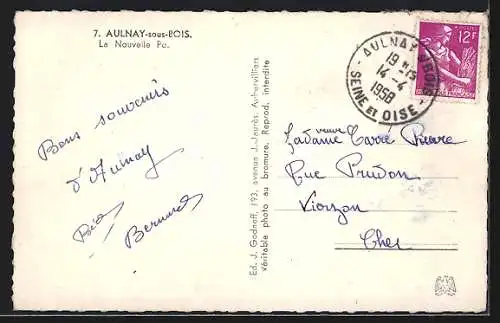 7. AULNAY-sous-BOIS.
La Nouvelle Po.
Bons souvenirs
d'Aulnay
Bernard
Ed. J. Godneff, 193, avenue J.-Jaurès, Aubervilliers
Véritable photo au bromure. Reprod. interdite
AULNAY-S-BOIS
19 H -15
14-4
1958
SEINE ET OISE
12F
veuve
Madame Carré Pierre
Rue Prudon
Vierzon
Cher